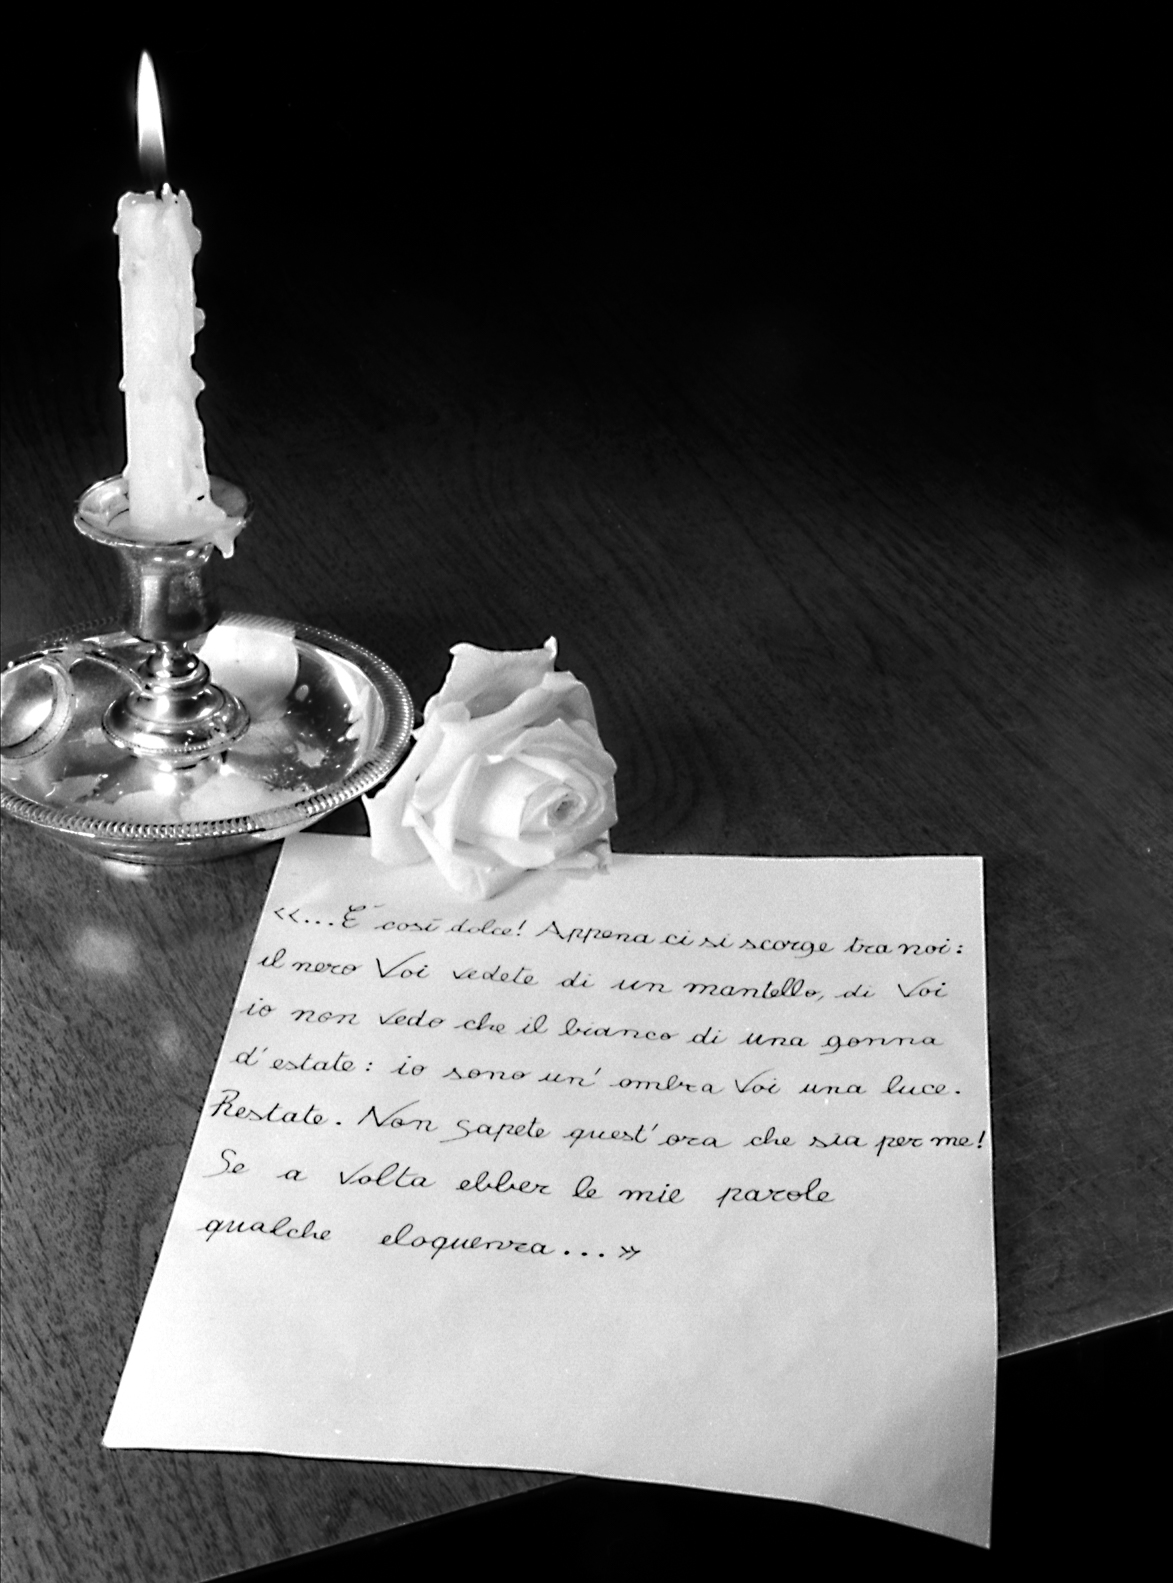 «...E' così dolce! Appena ci si scorge tra noi:
il nero Voi vedete di un mantello, di Voi
io non vedo che il bianco di una gonna
d'estate: io sono un' ombra Voi una luce.
Restate. Non sapete quest'ora che sia per me!
Se a volta ebber le mie parole
qualche eloquenza...»